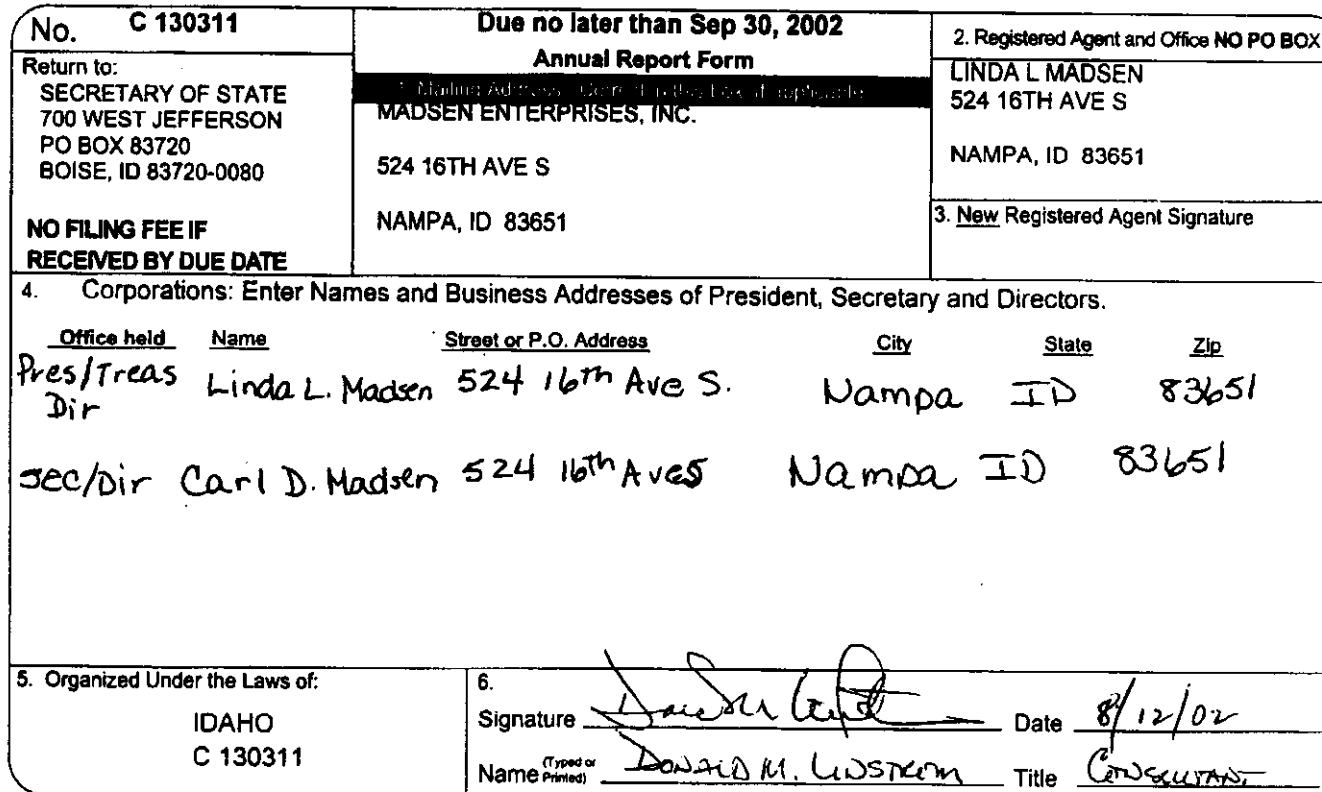 No. C 130311
Return to:
SECRETARY OF STATE
700 WEST JEFFERSON
PO BOX 83720
BOISE, ID 83720-0080
NO FILING FEE IF
RECEIVED BY DUE DATE
Due no later than Sep 30, 2002
Annual Report Form
1. Mailing Address: Correct in this box if applicable
MADSEN ENTERPRISES, INC.
524 16TH AVE S
NAMPA, ID 83651
2. Registered Agent and Office NO PO BOX
LINDA L MADSEN
524 16TH AVE S
NAMPA, ID 83651
3. New Registered Agent Signature
4. Corporations: Enter Names and Business Addresses of President, Secretary and Directors.
Office held Name Street or P.O. Address City State Zip
Pres/Treas Linda L. Madsen 524 16th Ave S. Nampa ID 83651
Dir
Sec/Dir Carl D. Madsen 524 16th Ave S Nampa ID 83651
5. Organized Under the Laws of:
IDAHO
C 130311
6.
Signature Date 8/12/02
Name (Typed or Printed) DONALD M. LINDSTROM Title CONSULTANT